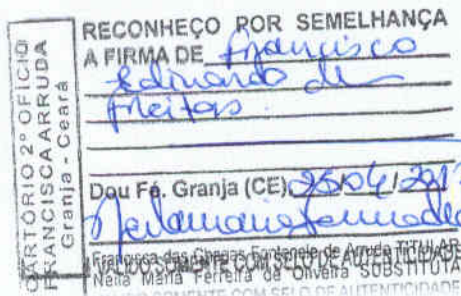 CARTÓRIO 2º OFÍCIO
FRANCISCA ARRUDA
Granja - Ceará
RECONHEÇO POR SEMELHANÇA
A FIRMA DE Francisco
Edinardo de
Freitas.
Dou Fé. Granja (CE), 25/04/2017
Francisca das Chagas de Arruda TITULAR
VÁLIDO SOMENTE COM SELO DE AUTENTICIDADE
Neila Maria Ferreira de Oliveira SUBSTITUTA
VÁLIDO SOMENTE COM SELO DE AUTENTICIDADE